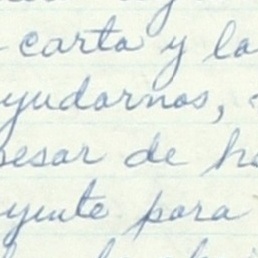 carta y la
yudarnos,
pesar de he
yunte para